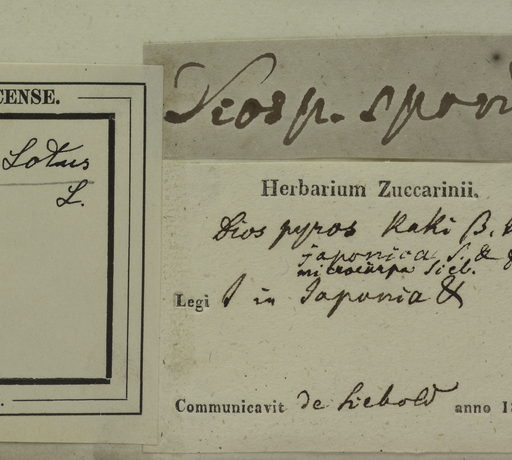 CENSE.
Lotus
L.
Diosp. spon
Herbarium Zuccarinii.
Diospyros Kaki β.
japonica S. & 
microcarpa Sieb.
Legi in Japonia &
Communicavit de Siebold anno 18